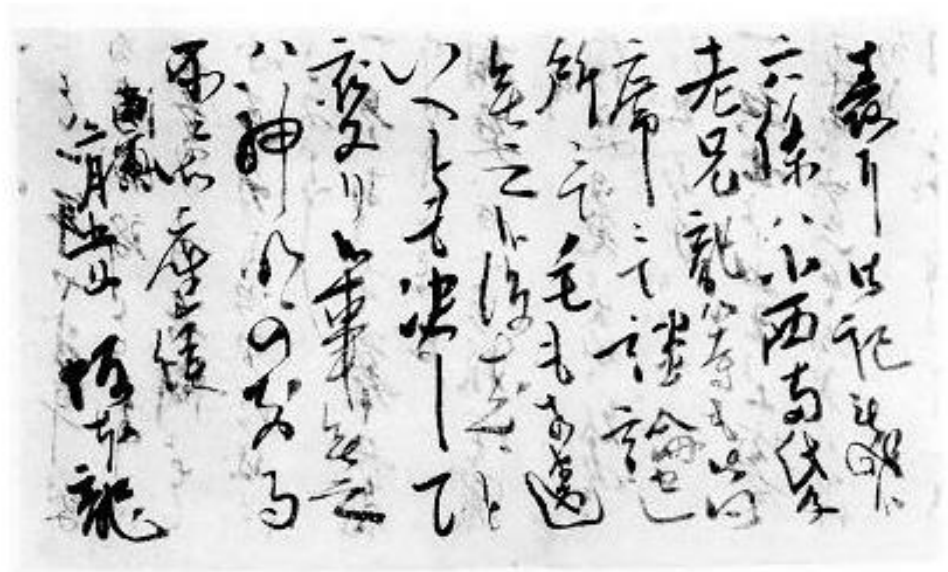 表ニ御記被成候
六條ハ小西両氏及
老兄龍等も御同
席ニて談論セし
所ニて毛も相違
無之候後来と
いへとも決して
変り候事無之
ハ神明の知る
所ニ御座候
丙寅
二月五日 坂本龍